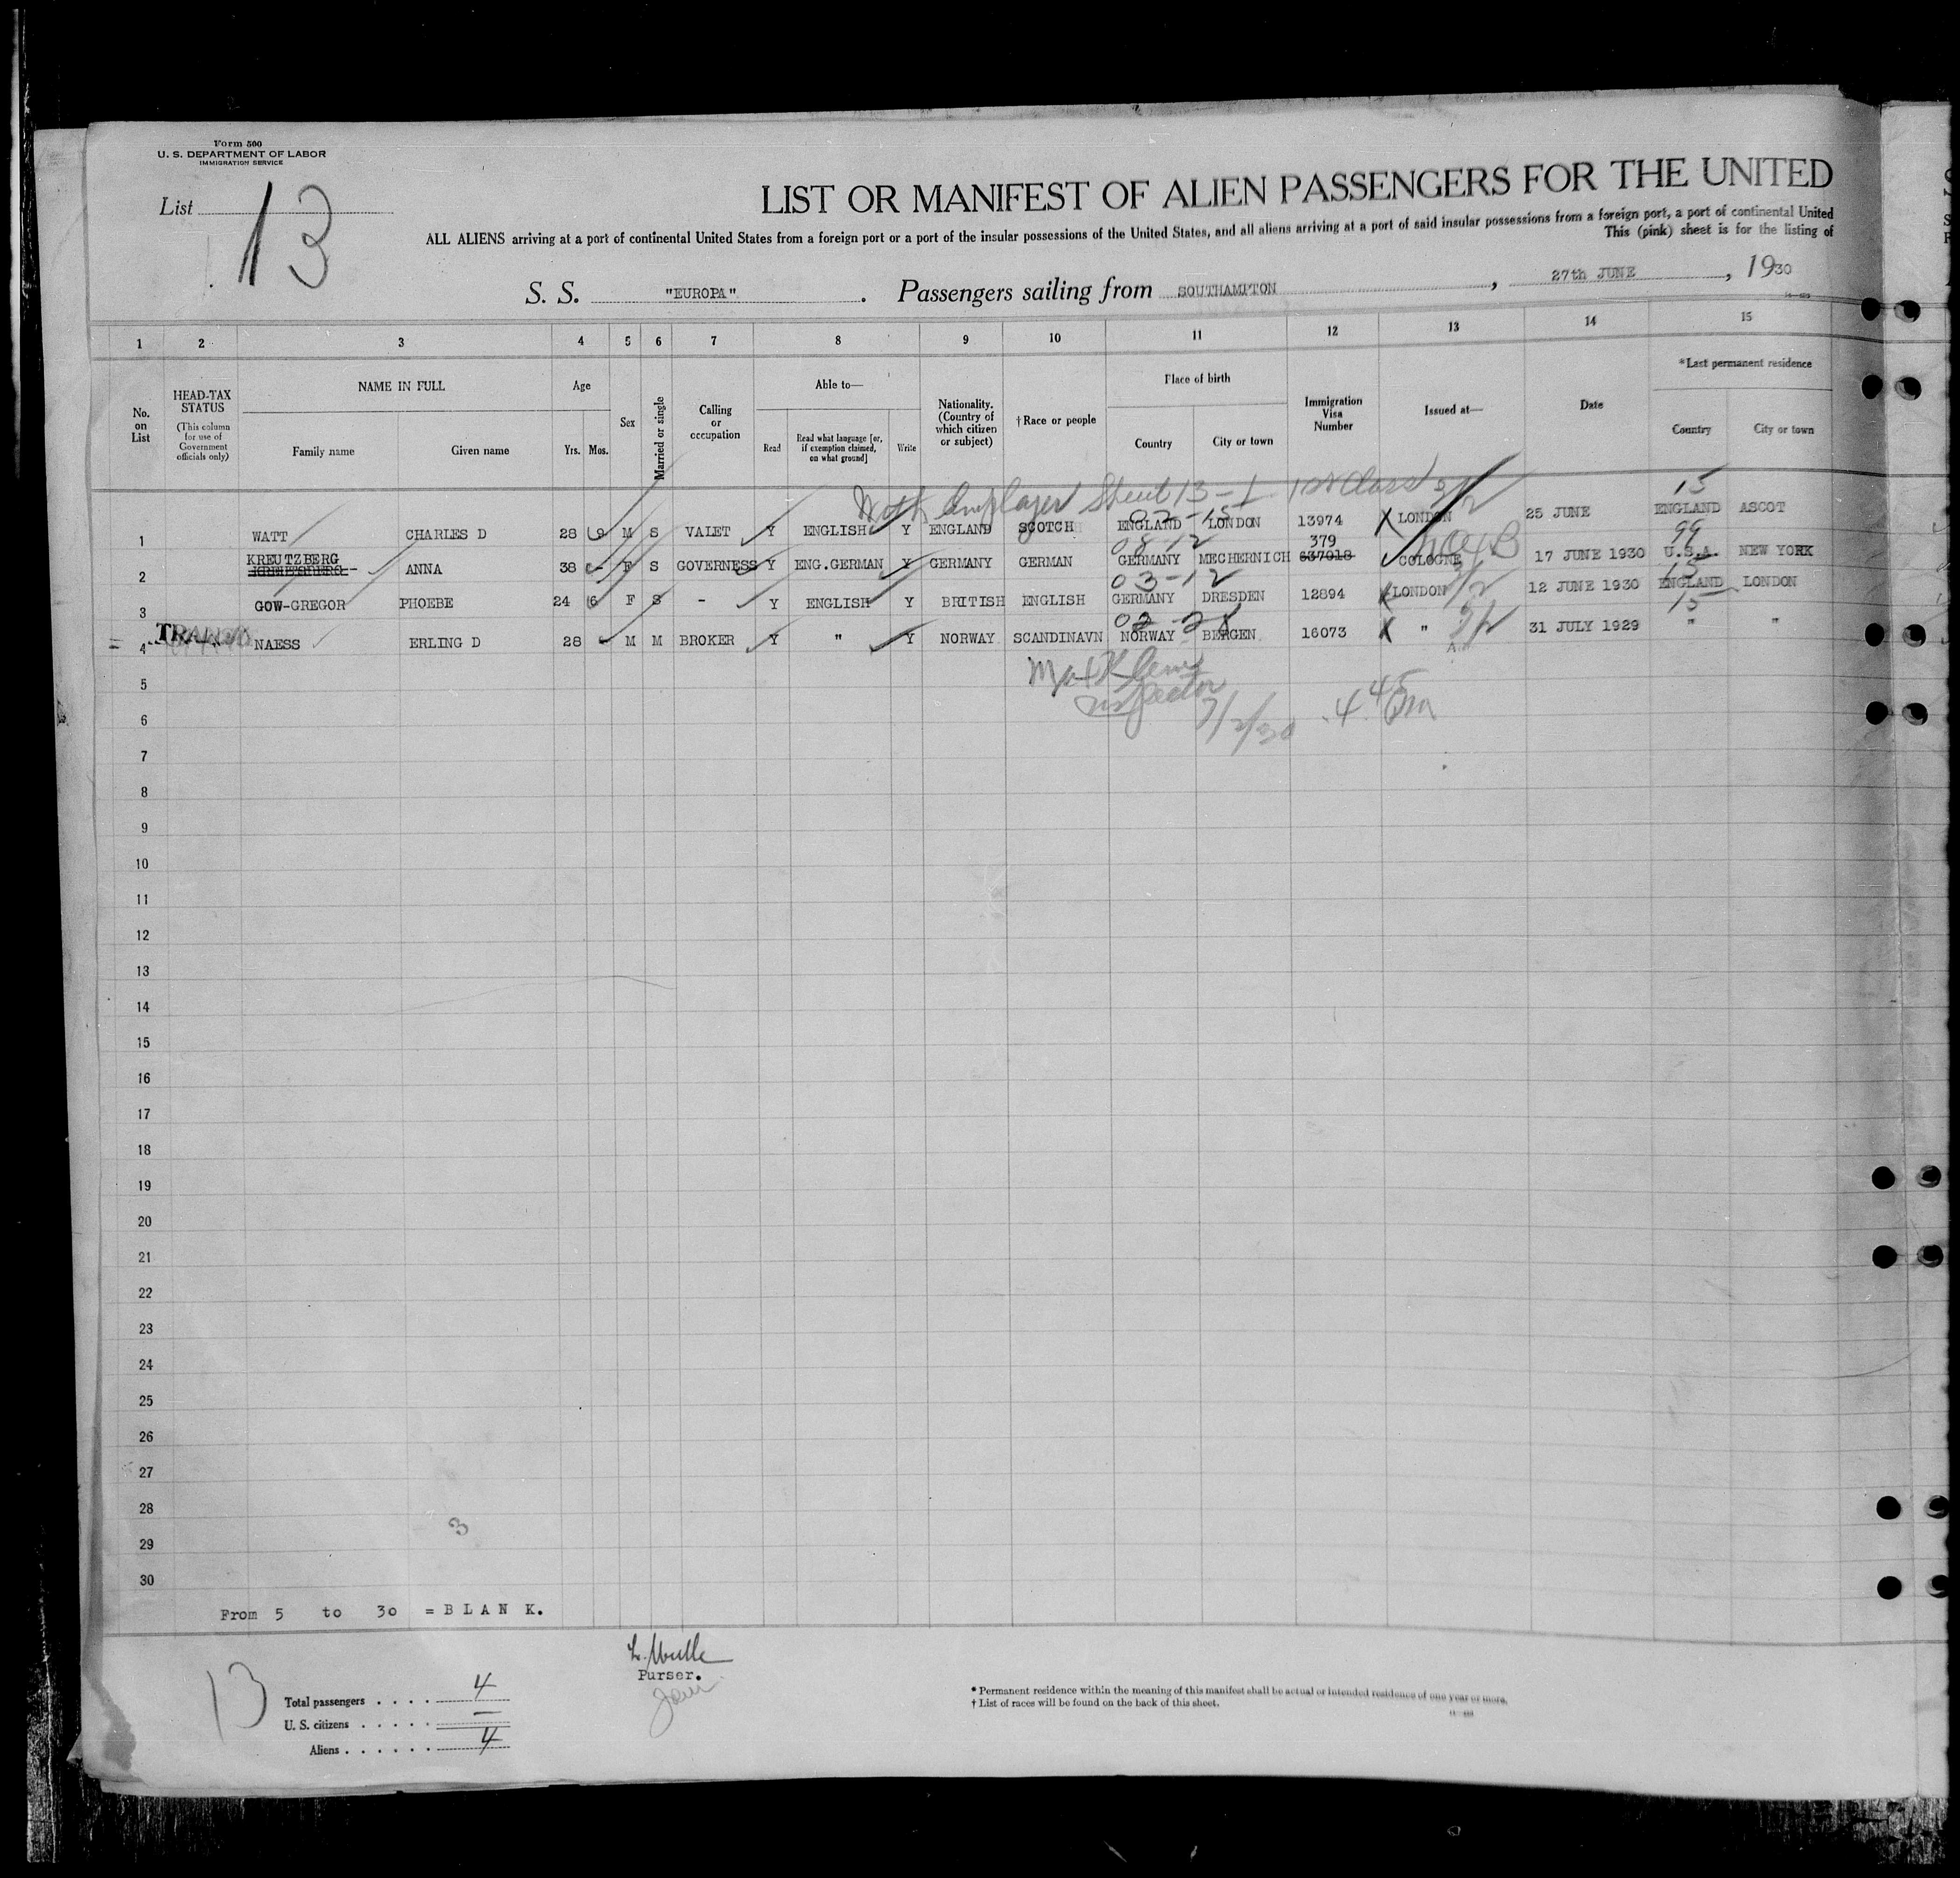 Form 500
U. S. DEPARTMENT OF LABOR
IMMIGRATION SERVICE
List 13
LIST OR MANIFEST OF ALIEN PASSENGERS FOR THE UNITED
ALL ALIENS arriving at a port of continental United States from a foreign port or a port of the insular possessions of the United States, and all aliens arriving at a port of said insular possessions from a foreign port, a port of continental United
This (pink) sheet is for the listing of
S. S. "EUROPA". Passengers sailing from SOUTHAMPTON, 27th JUNE, 1930
1 2 3 4 5 6 7 8 9 10 11 12 13 14 15
No. on List
HEAD-TAX STATUS (This column for use of Government officials only)
NAME IN FULL
Family name Given name
Age
Yrs. Mos.
Sex
Married or single
Calling or occupation
Able to—
Read Read what language [or, if exemption claimed, on what ground] Write
Nationality. (Country of which citizen or subject)
†Race or people
Place of birth
Country City or town
Immigration Visa Number
Issued at—
Date
*Last permanent residence
Country City or town
With Employer Sheet 13-1 1st Class 15
02-15
1 WATT CHARLES D 28 9 M S VALET Y ENGLISH Y ENGLAND SCOTCH ENGLAND LONDON 13974 LONDON 25 JUNE ENGLAND ASCOT
08-12 99
2 KREUTZBERG ANNA 38 - F S GOVERNESS Y ENG.GERMAN Y GERMANY GERMAN GERMANY MECHERNICH 379 637018 COLOGNE 17 JUNE 1930 U.S.A. NEW YORK
03-12 15
3 GOW-GREGOR PHOEBE 24 6 F S - Y ENGLISH Y BRITISH ENGLISH GERMANY DRESDEN 12894 LONDON 12 JUNE 1930 ENGLAND LONDON
15
TRANSIT
4 NAESS ERLING D 28 - M M BROKER Y " Y NORWAY SCANDINAVN NORWAY BERGEN 16073 " 31 JULY 1929 " "
Inspector
7/2/30 4 45 Pm
5
6
7
8
9
10
11
12
13
14
15
16
17
18
19
20
21
22
23
24
25
26
27
28
29
30
3
From 5 to 30 = B L A N K.
Purser.
13
Total passengers . . . . 4
U. S. citizens . . . . . —
Aliens . . . . . . 4
* Permanent residence within the meaning of this manifest shall be actual or intended residence of one year or more.
† List of races will be found on the back of this sheet.